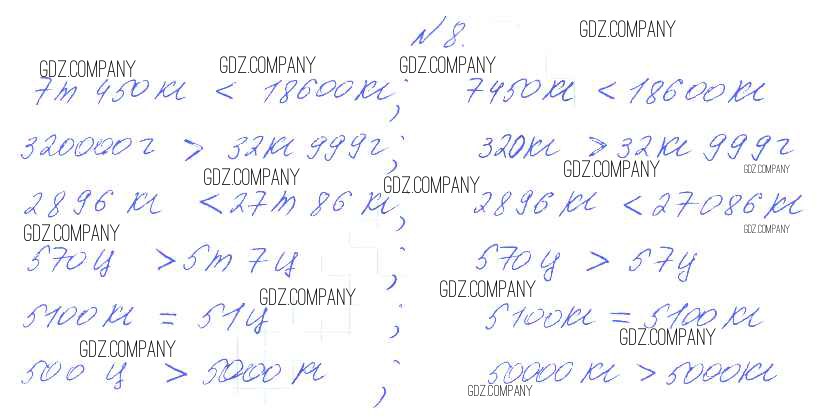 N 8.
GDZ.COMPANY
GDZ.COMPANY GDZ.COMPANY GDZ.COMPANY
7т 450кг < 18600кг; 7450кг < 18600кг
320000г > 32кг 999г; 320кг > 32кг 999г
GDZ.COMPANY GDZ.COMPANY
GDZ.COMPANY GDZ.COMPANY
2896 кг < 27т 86 кг; 2896 кг < 27086кг
GDZ.COMPANY GDZ.COMPANY
570 ц > 5т 7ц; 570ц > 57ц
GDZ.COMPANY GDZ.COMPANY
5100кг = 51ц; 5100кг = 5100кг
GDZ.COMPANY GDZ.COMPANY
500 ц > 5000 кг; 50000 кг > 5000кг
GDZ.COMPANY